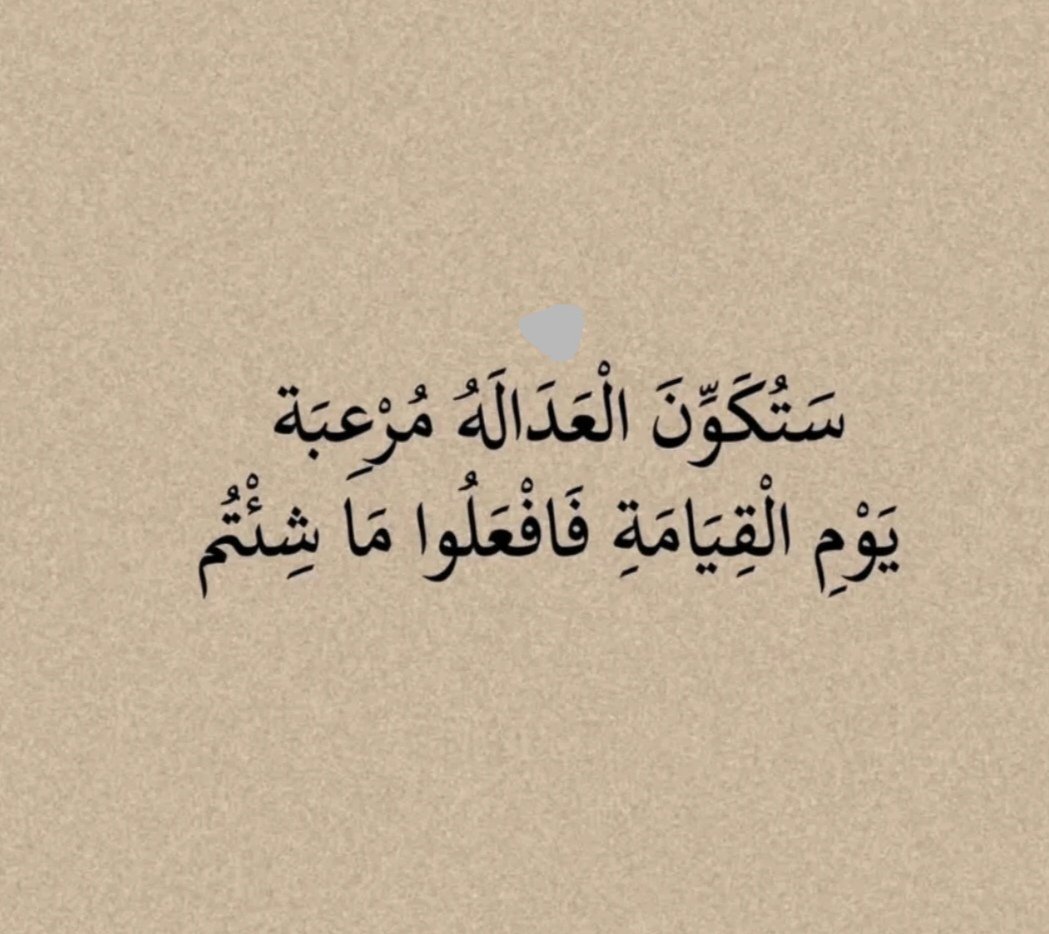 سَتُكَوِّنَ الْعَدَالَهُ مُرْعِبَة
يَوْمِ الْقِيَامَةِ فَافْعَلُوا مَا شِئْتُم